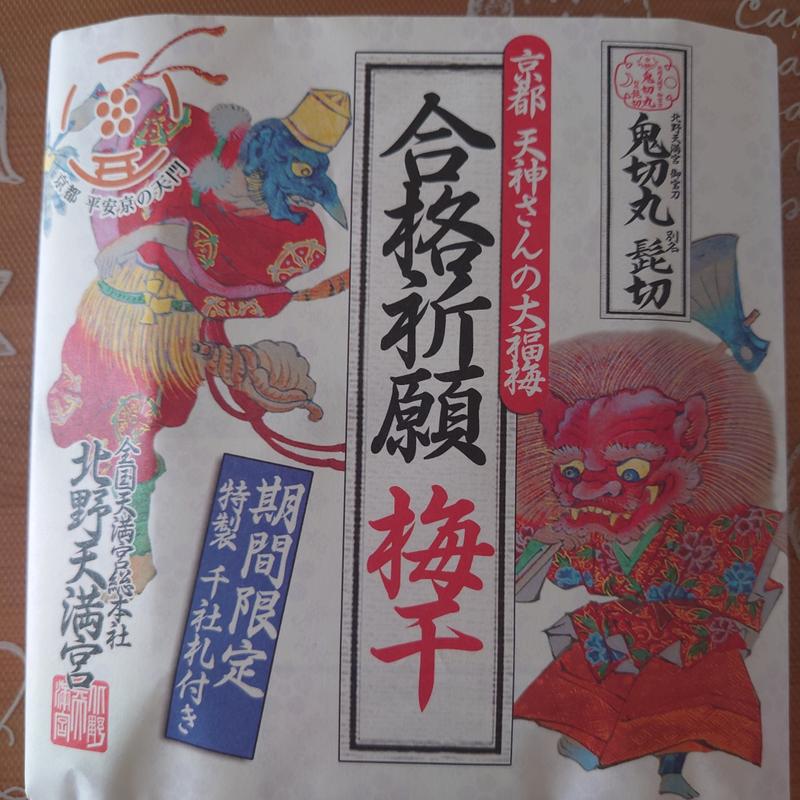 北野天満宮 御宝刀
鬼切丸
別名
髭切
鬼切丸
京都 天神さんの大福梅
合格祈願 梅干
期間限定
特製 千社札付き
京都 平安京の天門
全国天満宮総本社
北野天満宮
北野
天
満宮